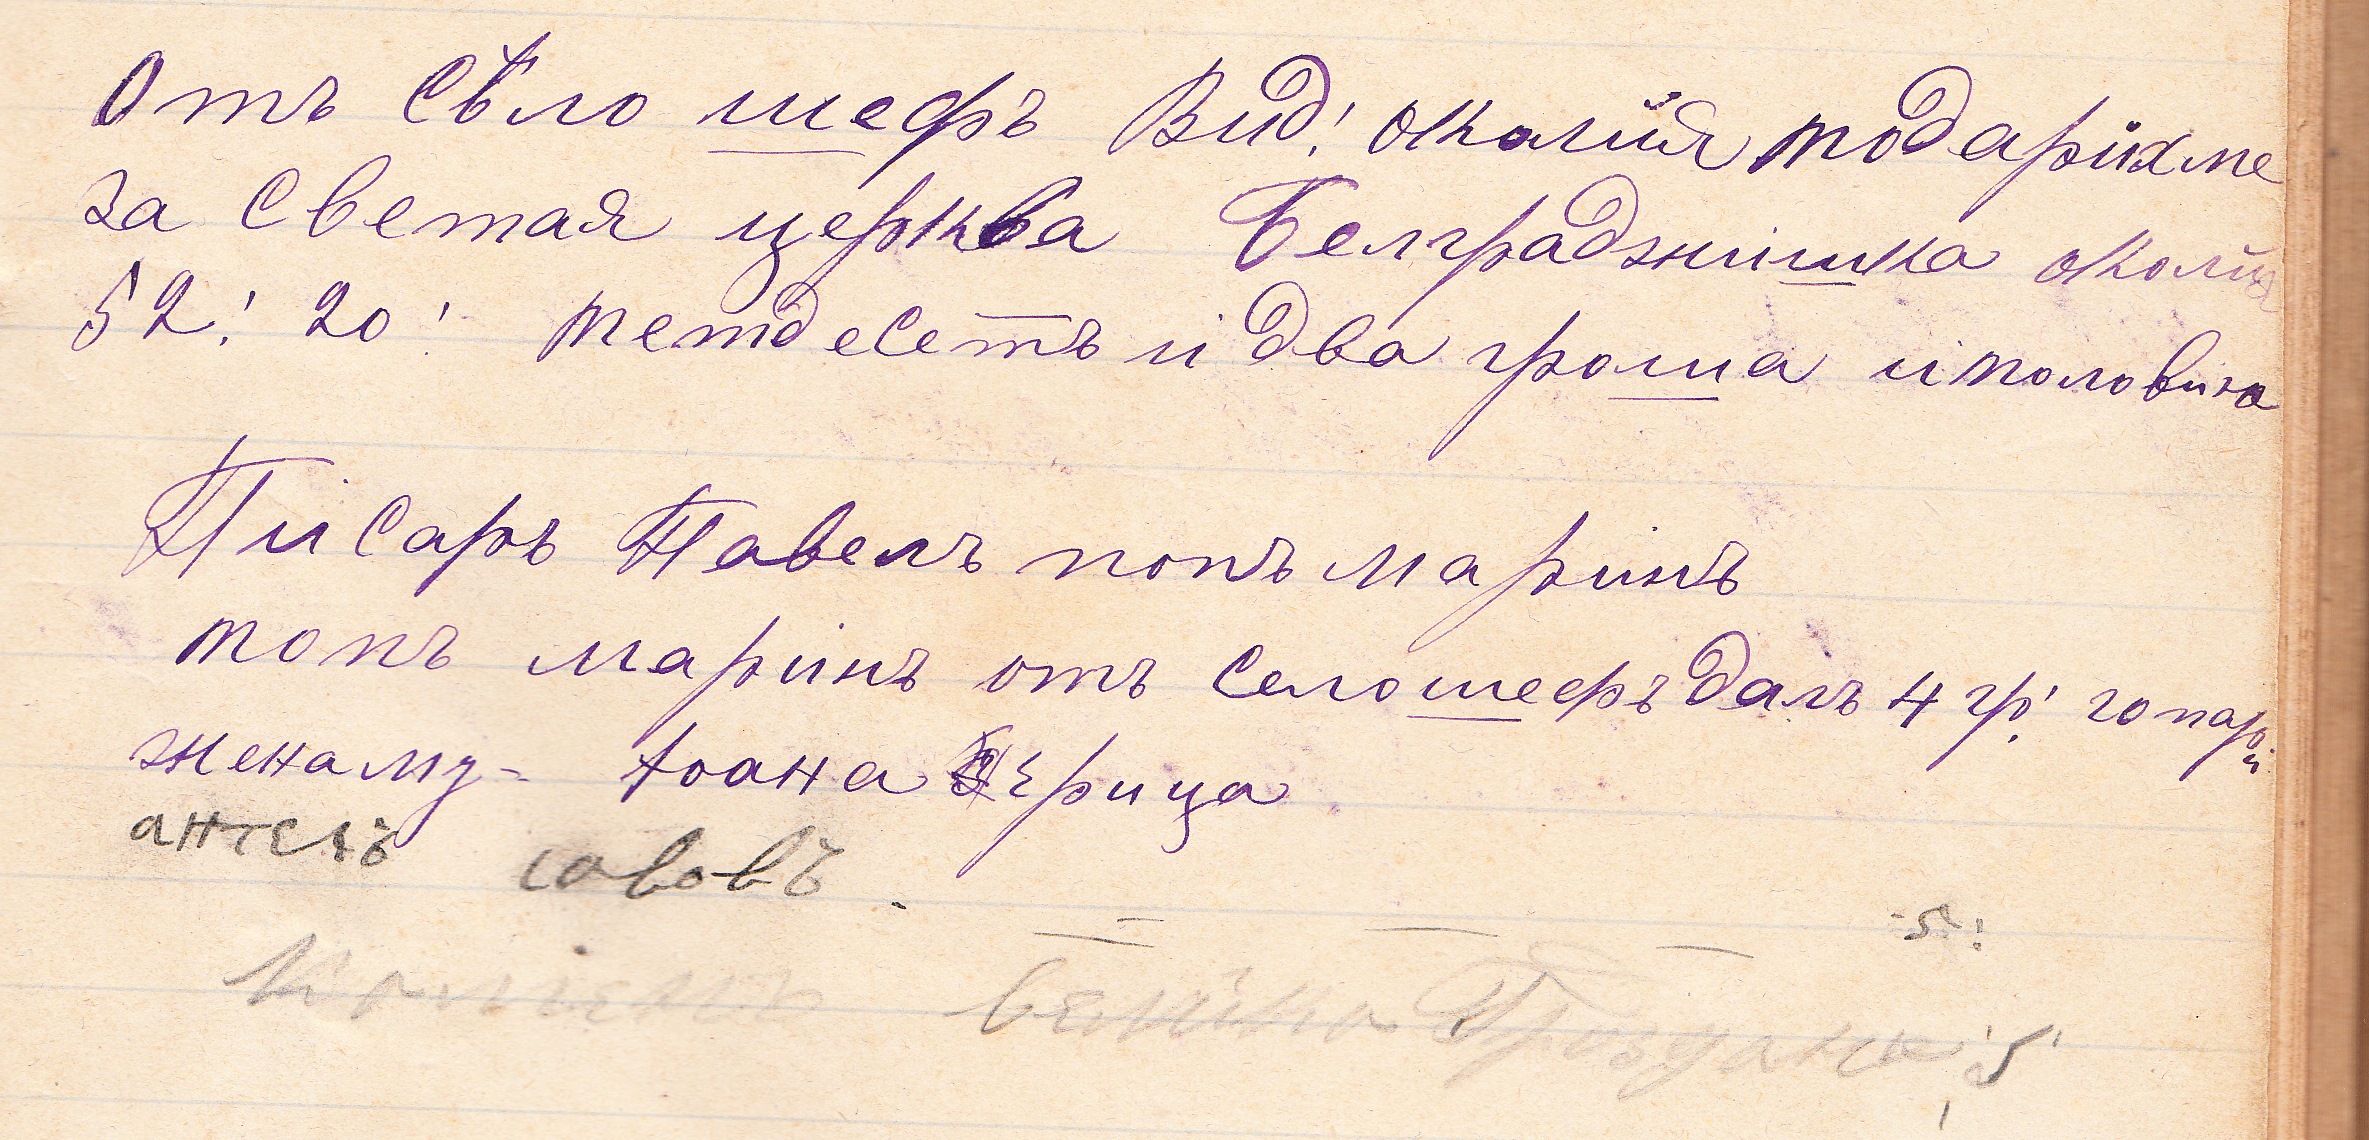 Отъ Сѣло шефъ Вид! околия подарихме
за Светая церква Белграджишка околия
52! 20! петдесетъ и два гроша и половина
Писаръ Павелъ попъ маринъ
попъ маринъ отъ село шефъ далъ 4 гр! 20 пари
женаму - Іоана ерица
ангелъ савовъ . 5:
5